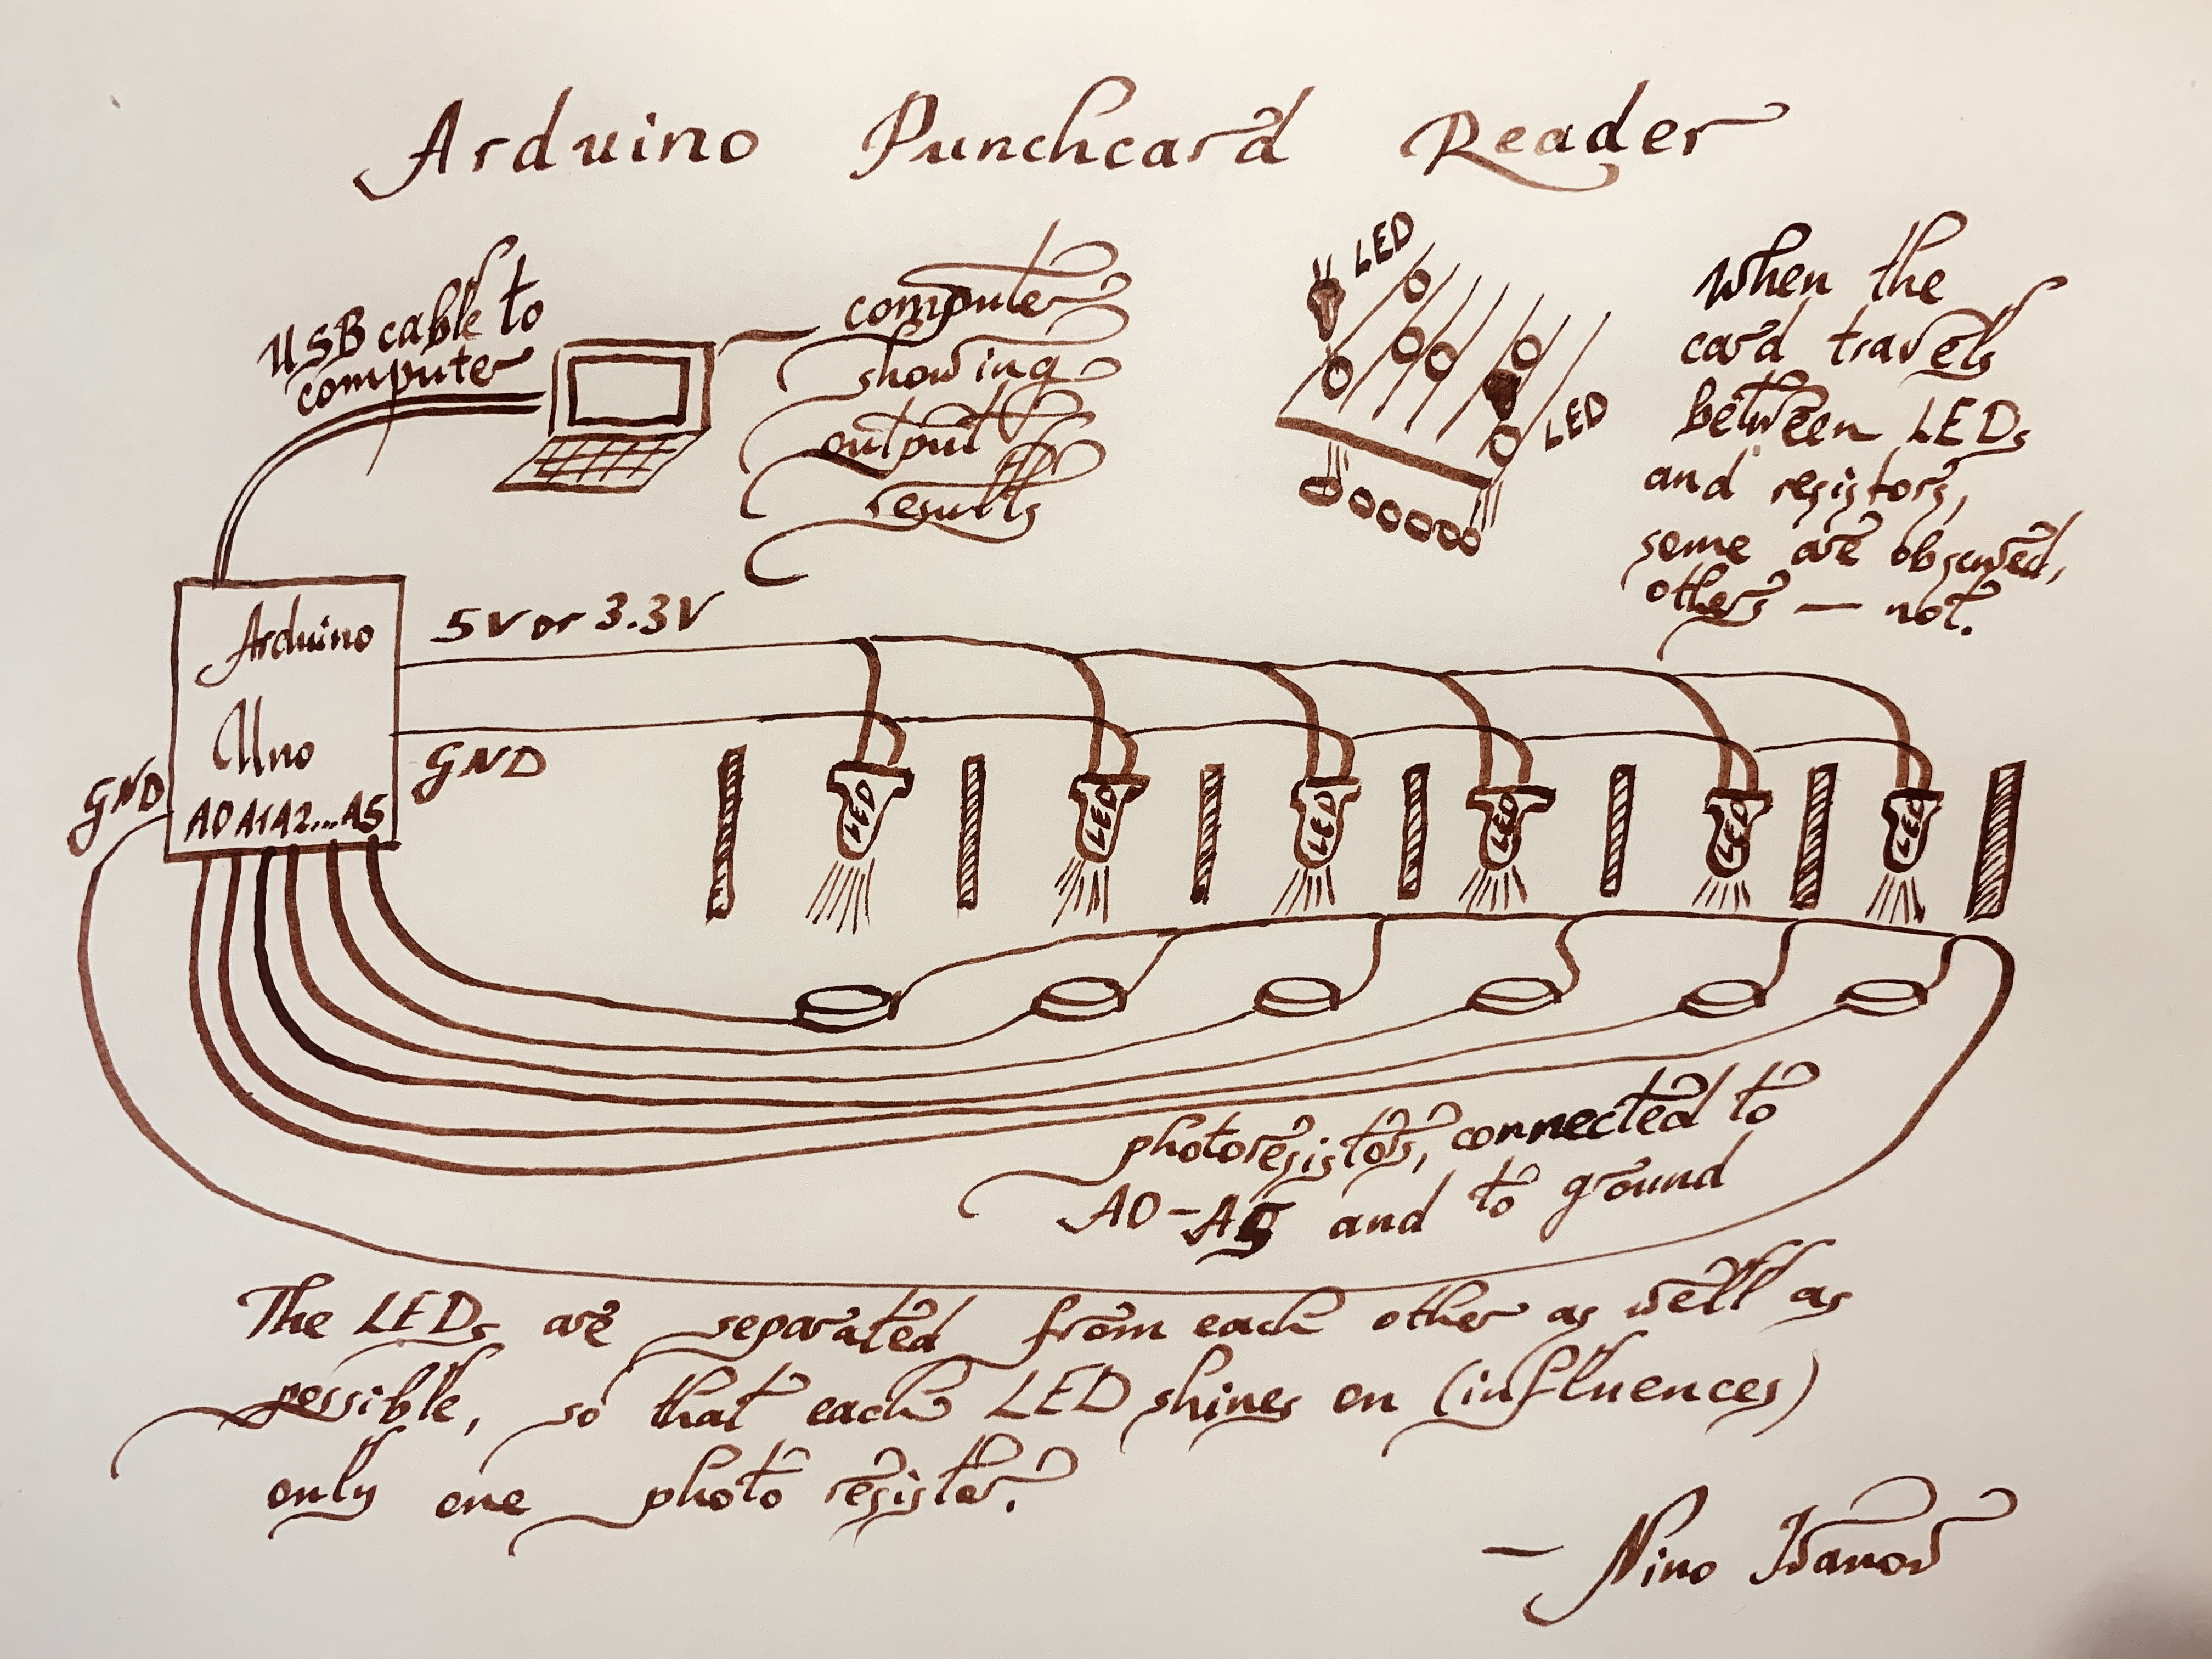 Arduino Punchcard Reader
USB cable to
computer
computer
showing
output
results
LED
LED
When the
card travels
between LEDs
and resistors,
some are obscured,
others — not.
Arduino
Uno
A0 A1 A2...A5
5V or 3.3V
GND
GND
LED
LED
LED
LED
LED
LED
photoresistors, connected to
A0-A5 and to ground
The LEDs are separated from each other as well as
possible, so that each LED shines on (influences)
only one photo resistor.
— Nino Ivanov